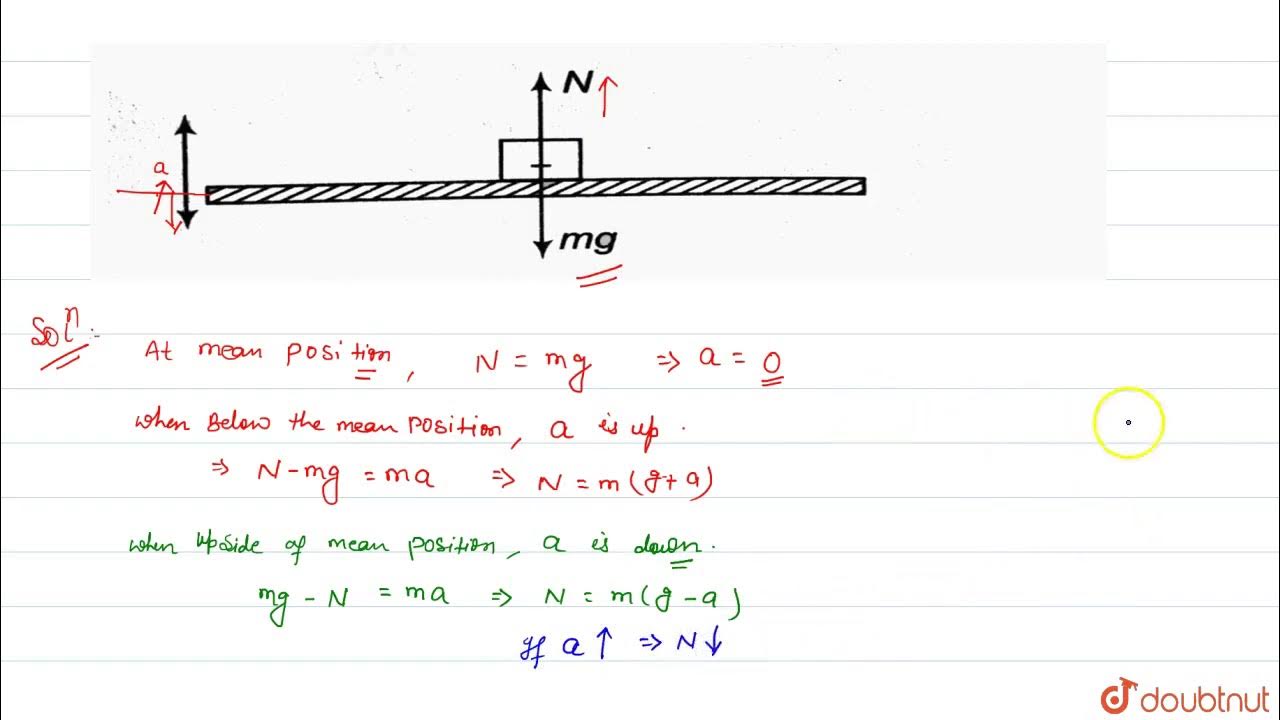 N ↑
a
mg
Solⁿ :
At mean position, N = mg ⇒ a = 0
when Below the mean position, a is up.
⇒ N - mg = ma ⇒ N = m(g+a)
when upside of mean position, a is down.
mg - N = ma ⇒ N = m(g-a)
If a ↑ ⇒ N ↓
doubtnut